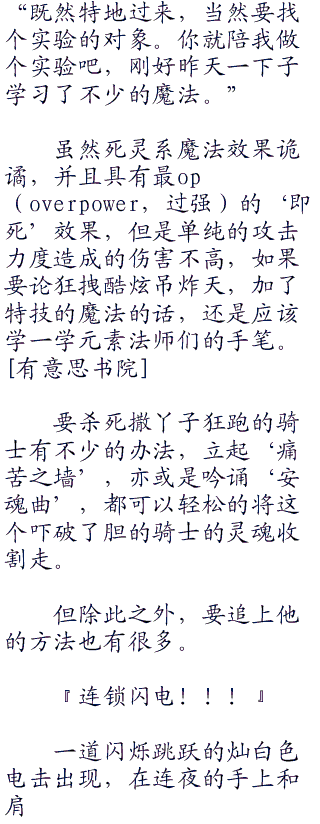 “既然特地过来，当然要找
个实验的对象。你就陪我做
个实验吧，刚好昨天一下子
学习了不少的魔法。”
虽然死灵系魔法效果诡
谲，并且具有最op
（overpower，过强）的‘即
死’效果，但是单纯的攻击
力度造成的伤害不高，如果
要论狂拽酷炫吊炸天，加了
特技的魔法的话，还是应该
学一学元素法师们的手笔。
[有意思书院]
要杀死撒丫子狂跑的骑
士有不少的办法，立起‘痛
苦之墙’，亦或是吟诵‘安
魂曲’，都可以轻松的将这
个吓破了胆的骑士的灵魂收
割走。
但除此之外，要追上他
的方法也有很多。
『连锁闪电！！！』
一道闪烁跳跃的灿白色
电击出现，在连夜的手上和
肩